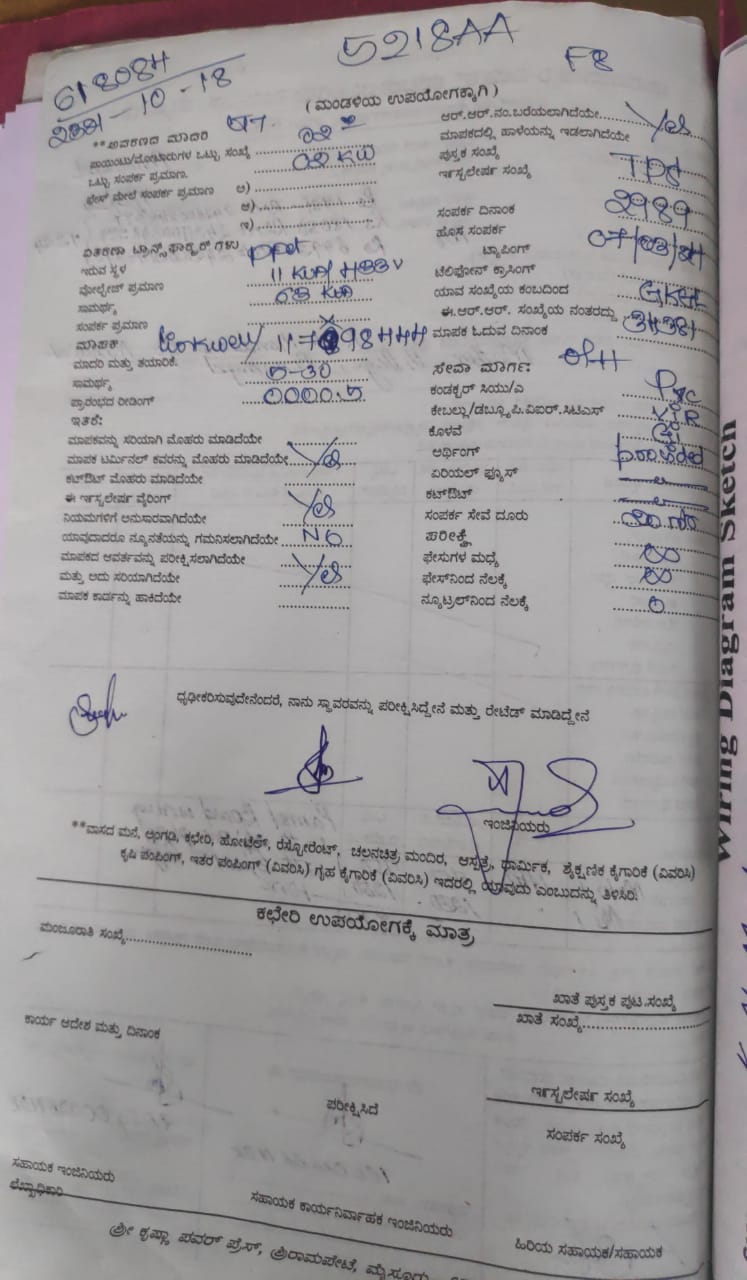 5218AA
F8
618084
2001-10-18
( ಮಂಡಳಿಯ ಉಪಯೋಗಕ್ಕಾಗಿ )
**ಅವಕರಣದ ಮಾದರಿ
ಪಾಯಿಂಟು/ಮೋಟಾರುಗಳ ಒಟ್ಟು ಸಂಖ್ಯೆ 02
ಒಟ್ಟು ಸಂಪರ್ಕ ಪ್ರಮಾಣ. 02 KW
ಫೇಸ್ ಮೇಲೆ ಸಂಪರ್ಕ ಪ್ರಮಾಣ ಅ)
ಆ)
ಇ)
ವಿತರಣಾ ಟ್ರಾನ್ಸ್‌ಫಾರ್ಮರ್ ಗಳು
ಇರುವ ಸ್ಥಳ
ವೋಲ್ಟೇಜ್ ಪ್ರಮಾಣ
ಸಾಮರ್ಥ್ಯ 63 KVA
ಸಂಪರ್ಕ ಪ್ರಮಾಣ
ಮಾಪಕ
ಮಾದರಿ ಮತ್ತು ತಯಾರಿಕೆ.
ಸಾಮರ್ಥ್ಯ 5-30
ಪ್ರಾರಂಭದ ರೀಡಿಂಗ್ 0000.5
ಇತರೆ:
ಮಾಪಕವನ್ನು ಸರಿಯಾಗಿ ಮೊಹರು ಮಾಡಿದೆಯೇ
ಮಾಪಕ ಟರ್ಮಿನಲ್ ಕವರನ್ನು ಮೊಹರು ಮಾಡಿದೆಯೇ Yes
ಕಟ್‌ಔಟ್ ಮೊಹರು ಮಾಡಿದೆಯೇ
ಈ ಇನ್‌ಸ್ಟಲೇಷನ್ ವೈರಿಂಗ್
ನಿಯಮಗಳಿಗೆ ಅನುಸಾರವಾಗಿದೆಯೇ Yes
ಯಾವುದಾದರೂ ನ್ಯೂನತೆಯನ್ನು ಗಮನಿಸಲಾಗಿದೆಯೇ NO
ಮಾಪಕದ ಆವರ್ತವನ್ನು ಪರೀಕ್ಷಿಸಲಾಗಿದೆಯೇ
ಮತ್ತು ಅದು ಸರಿಯಾಗಿದೆಯೇ Yes
ಮಾಪಕ ಕಾರ್ಡನ್ನು ಹಾಕಿದೆಯೇ
ಆರ್.ಆರ್.ನಂ.ಬರೆಯಲಾಗಿದೆಯೇ
ಮಾಪಕದಲ್ಲಿ ಹಾಳೆಯನ್ನು ಇಡಲಾಗಿದೆಯೇ Yes
ಪುಸ್ತಕ ಸಂಖ್ಯೆ
ಇನ್‌ಸ್ಟಲೇಷನ್ ಸಂಖ್ಯೆ TPS
2989
ಸಂಪರ್ಕ ದಿನಾಂಕ
ಹೊಸ ಸಂಪರ್ಕ
ಟ್ಯಾಪಿಂಗ್
ಟೆಲಿಫೋನ್ ಕ್ರಾಸಿಂಗ್
ಯಾವ ಸಂಖ್ಯೆಯ ಕಂಬದಿಂದ
ಈ.ಆರ್.ಆರ್. ಸಂಖ್ಯೆಯ ನಂತರದ್ದು
ಮಾಪಕ ಓದುವ ದಿನಾಂಕ
ಸೇವಾ ಮಾರ್ಗ: OH
ಕಂಡಕ್ಟರ್ ಸಿಯು/ಎ
ಕೇಬಲ್ಲು/ಡಬ್ಲ್ಯೂ.ಪಿ.ವಿಐಆರ್.ಸಿಟಿಎಸ್ VIR
ಕೊಳವೆ GI
ಅರ್ಥಿಂಗ್
ಏರಿಯಲ್ ಫ್ಯೂಸ್
ಕಟ್‌ಔಟ್
ಸಂಪರ್ಕ ಸೇವೆ ದೂರು
ಪರೀಕ್ಷೆ
ಫೇಸುಗಳ ಮಧ್ಯೆ
ಫೇಸ್‌ನಿಂದ ನೆಲಕ್ಕೆ
ನ್ಯೂಟ್ರಲ್‌ನಿಂದ ನೆಲಕ್ಕೆ 0
ಧೃಢೀಕರಿಸುವುದೇನೆಂದರೆ, ನಾನು ಸ್ಥಾವರವನ್ನು ಪರೀಕ್ಷಿಸಿದ್ದೇನೆ ಮತ್ತು ರೇಟೆಡ್ ಮಾಡಿದ್ದೇನೆ
ಇಂಜಿನಿಯರು
**ವಾಸದ ಮನೆ, ಅಂಗಡಿ, ಕಛೇರಿ, ಹೋಟೆಲ್, ರೆಸ್ಟೋರೆಂಟ್, ಚಲನಚಿತ್ರ ಮಂದಿರ, ಆಸ್ಪತ್ರೆ, ಧಾರ್ಮಿಕ, ಶೈಕ್ಷಣಿಕ ಕೈಗಾರಿಕೆ (ವಿವರಿಸಿ)
ಕೃಷಿ ಪಂಪಿಂಗ್, ಇತರ ಪಂಪಿಂಗ್ (ವಿವರಿಸಿ) ಗೃಹ ಕೈಗಾರಿಕೆ (ವಿವರಿಸಿ) ಇದರಲ್ಲಿ ಯಾವುದು ಎಂಬುದನ್ನು ತಿಳಿಸಿರಿ.
ಕಛೇರಿ ಉಪಯೋಗಕ್ಕೆ ಮಾತ್ರ
ಮಂಜೂರಾತಿ ಸಂಖ್ಯೆ
ಖಾತೆ ಪುಸ್ತಕ ಪುಟ.ಸಂಖ್ಯೆ
ಖಾತೆ ಸಂಖ್ಯೆ
ಕಾರ್ಯ ಆದೇಶ ಮತ್ತು ದಿನಾಂಕ
ಇನ್‌ಸ್ಟಲೇಷನ್ ಸಂಖ್ಯೆ
ಪರೀಕ್ಷಿಸಿದೆ
ಸಂಪರ್ಕ ಸಂಖ್ಯೆ
ಸಹಾಯಕ ಇಂಜಿನಿಯರು
ಲೆಖ್ಖಾಧಿಕಾರಿ
ಸಹಾಯಕ ಕಾರ್ಯನಿರ್ವಾಹಕ ಇಂಜಿನಿಯರು
ಹಿರಿಯ ಸಹಾಯಕ/ಸಹಾಯಕ
ಶ್ರೀ ಕೃಷ್ಣಾ ಪವರ್ ಪ್ರೆಸ್, ಶ್ರೀರಾಮಪೇಟೆ, ಮೈಸೂರು
Wiring Diagram Sketch